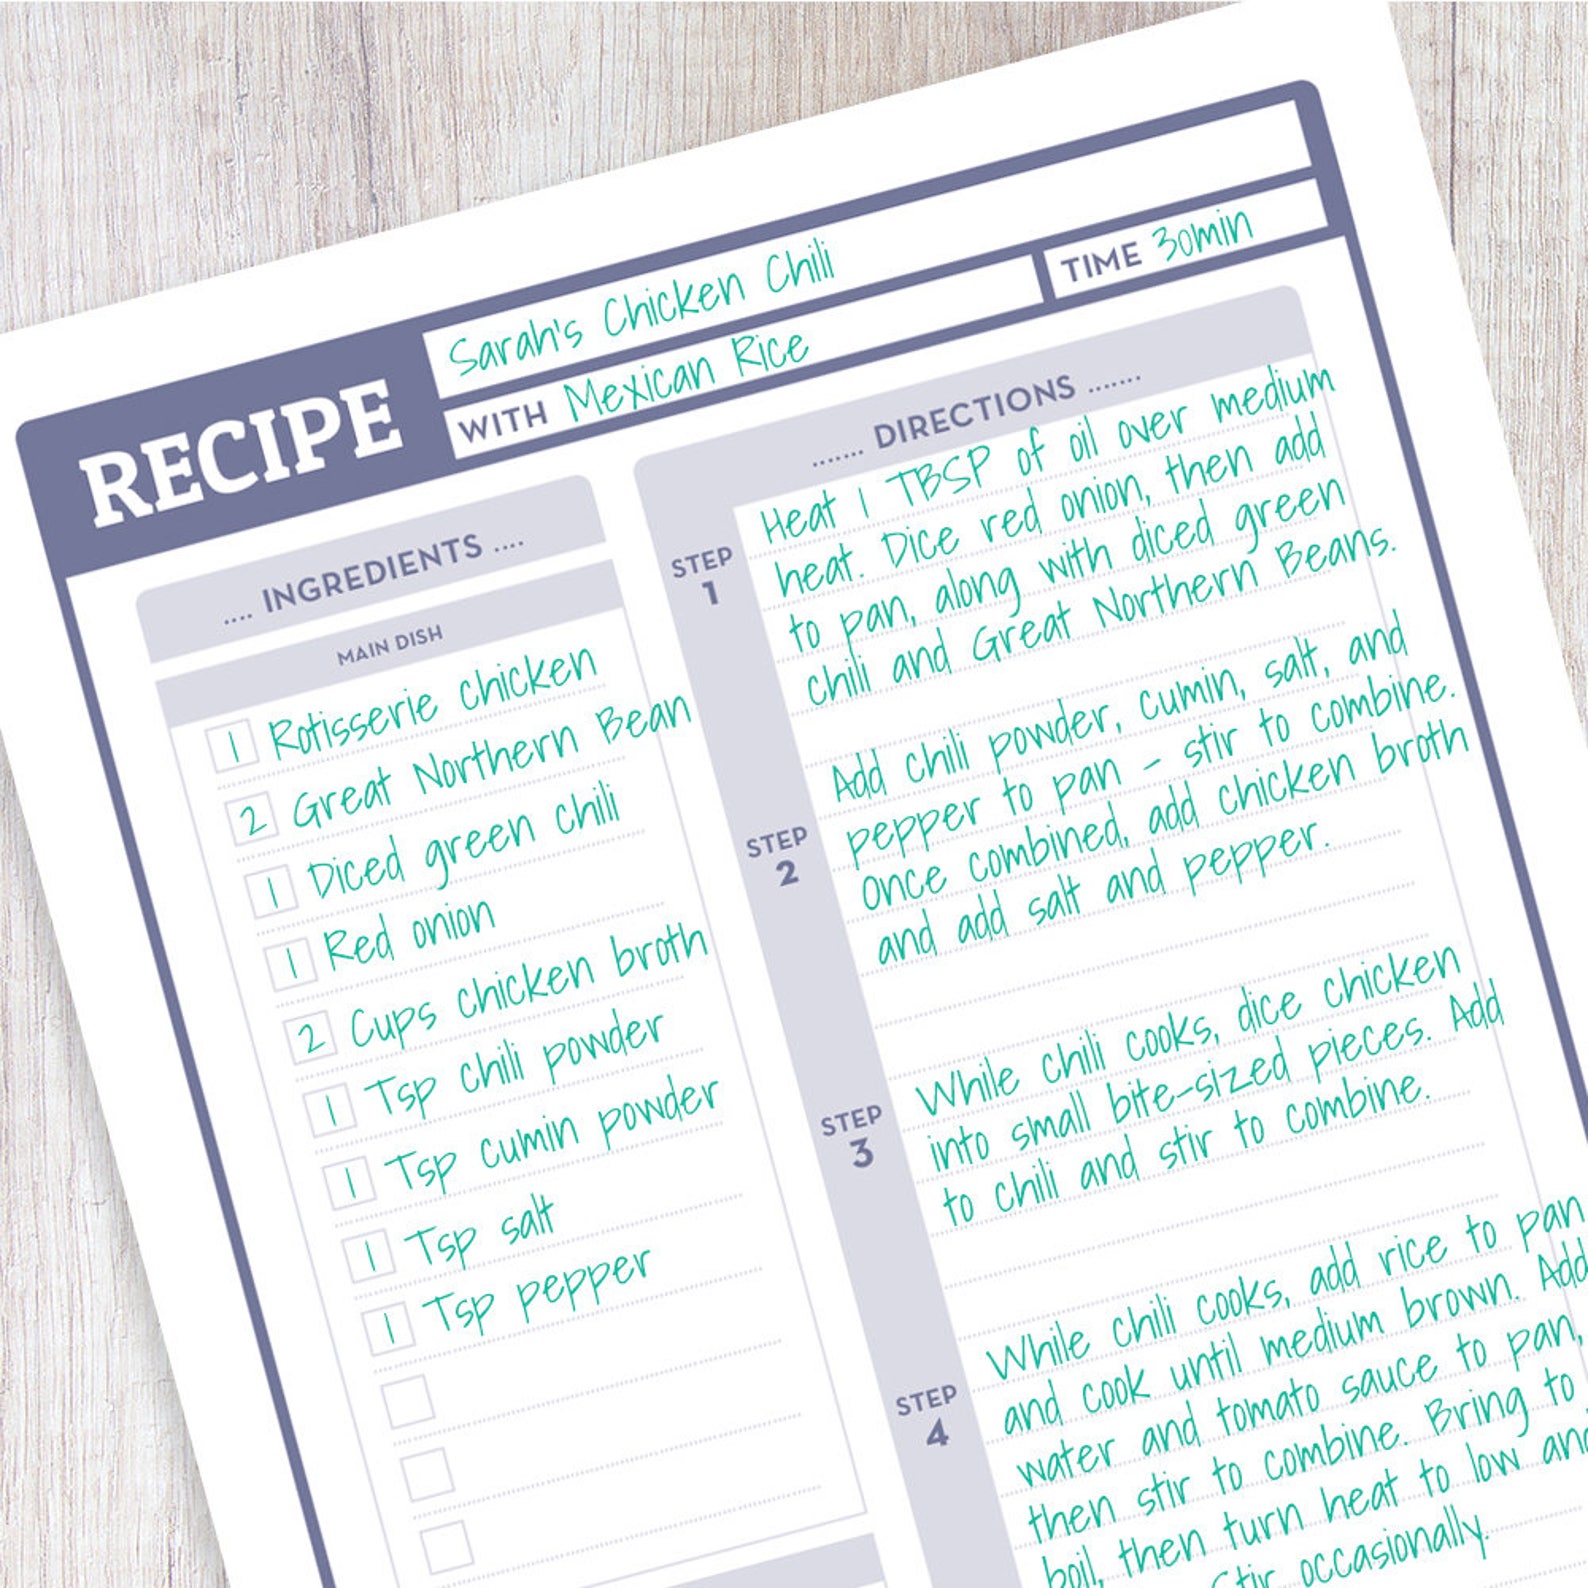 RECIPE
Sarah's Chicken Chili
WITH Mexican Rice
TIME 30min
.... INGREDIENTS ....
MAIN DISH
1 Rotisserie chicken
2 Great Northern Bean
1 Diced green chili
1 Red onion
2 Cups chicken broth
1 Tsp chili powder
1 Tsp cumin powder
1 Tsp salt
1 Tsp pepper
....... DIRECTIONS .......
STEP
1
Heat 1 TBSP of oil over medium
heat. Dice red onion, then add
to pan, along with diced green
chili and Great Northern Beans.
STEP
2
Add chili powder, cumin, salt, and
pepper to pan - stir to combine.
Once combined, add chicken broth
and add salt and pepper.
STEP
3
While chili cooks, dice chicken
into small bite-sized pieces. Add
to chili and stir to combine.
STEP
4
While chili cooks, add rice to pan
and cook until medium brown. Add
water and tomato sauce to pan,
then stir to combine. Bring to
boil, then turn heat to low and
Stir occasionally.